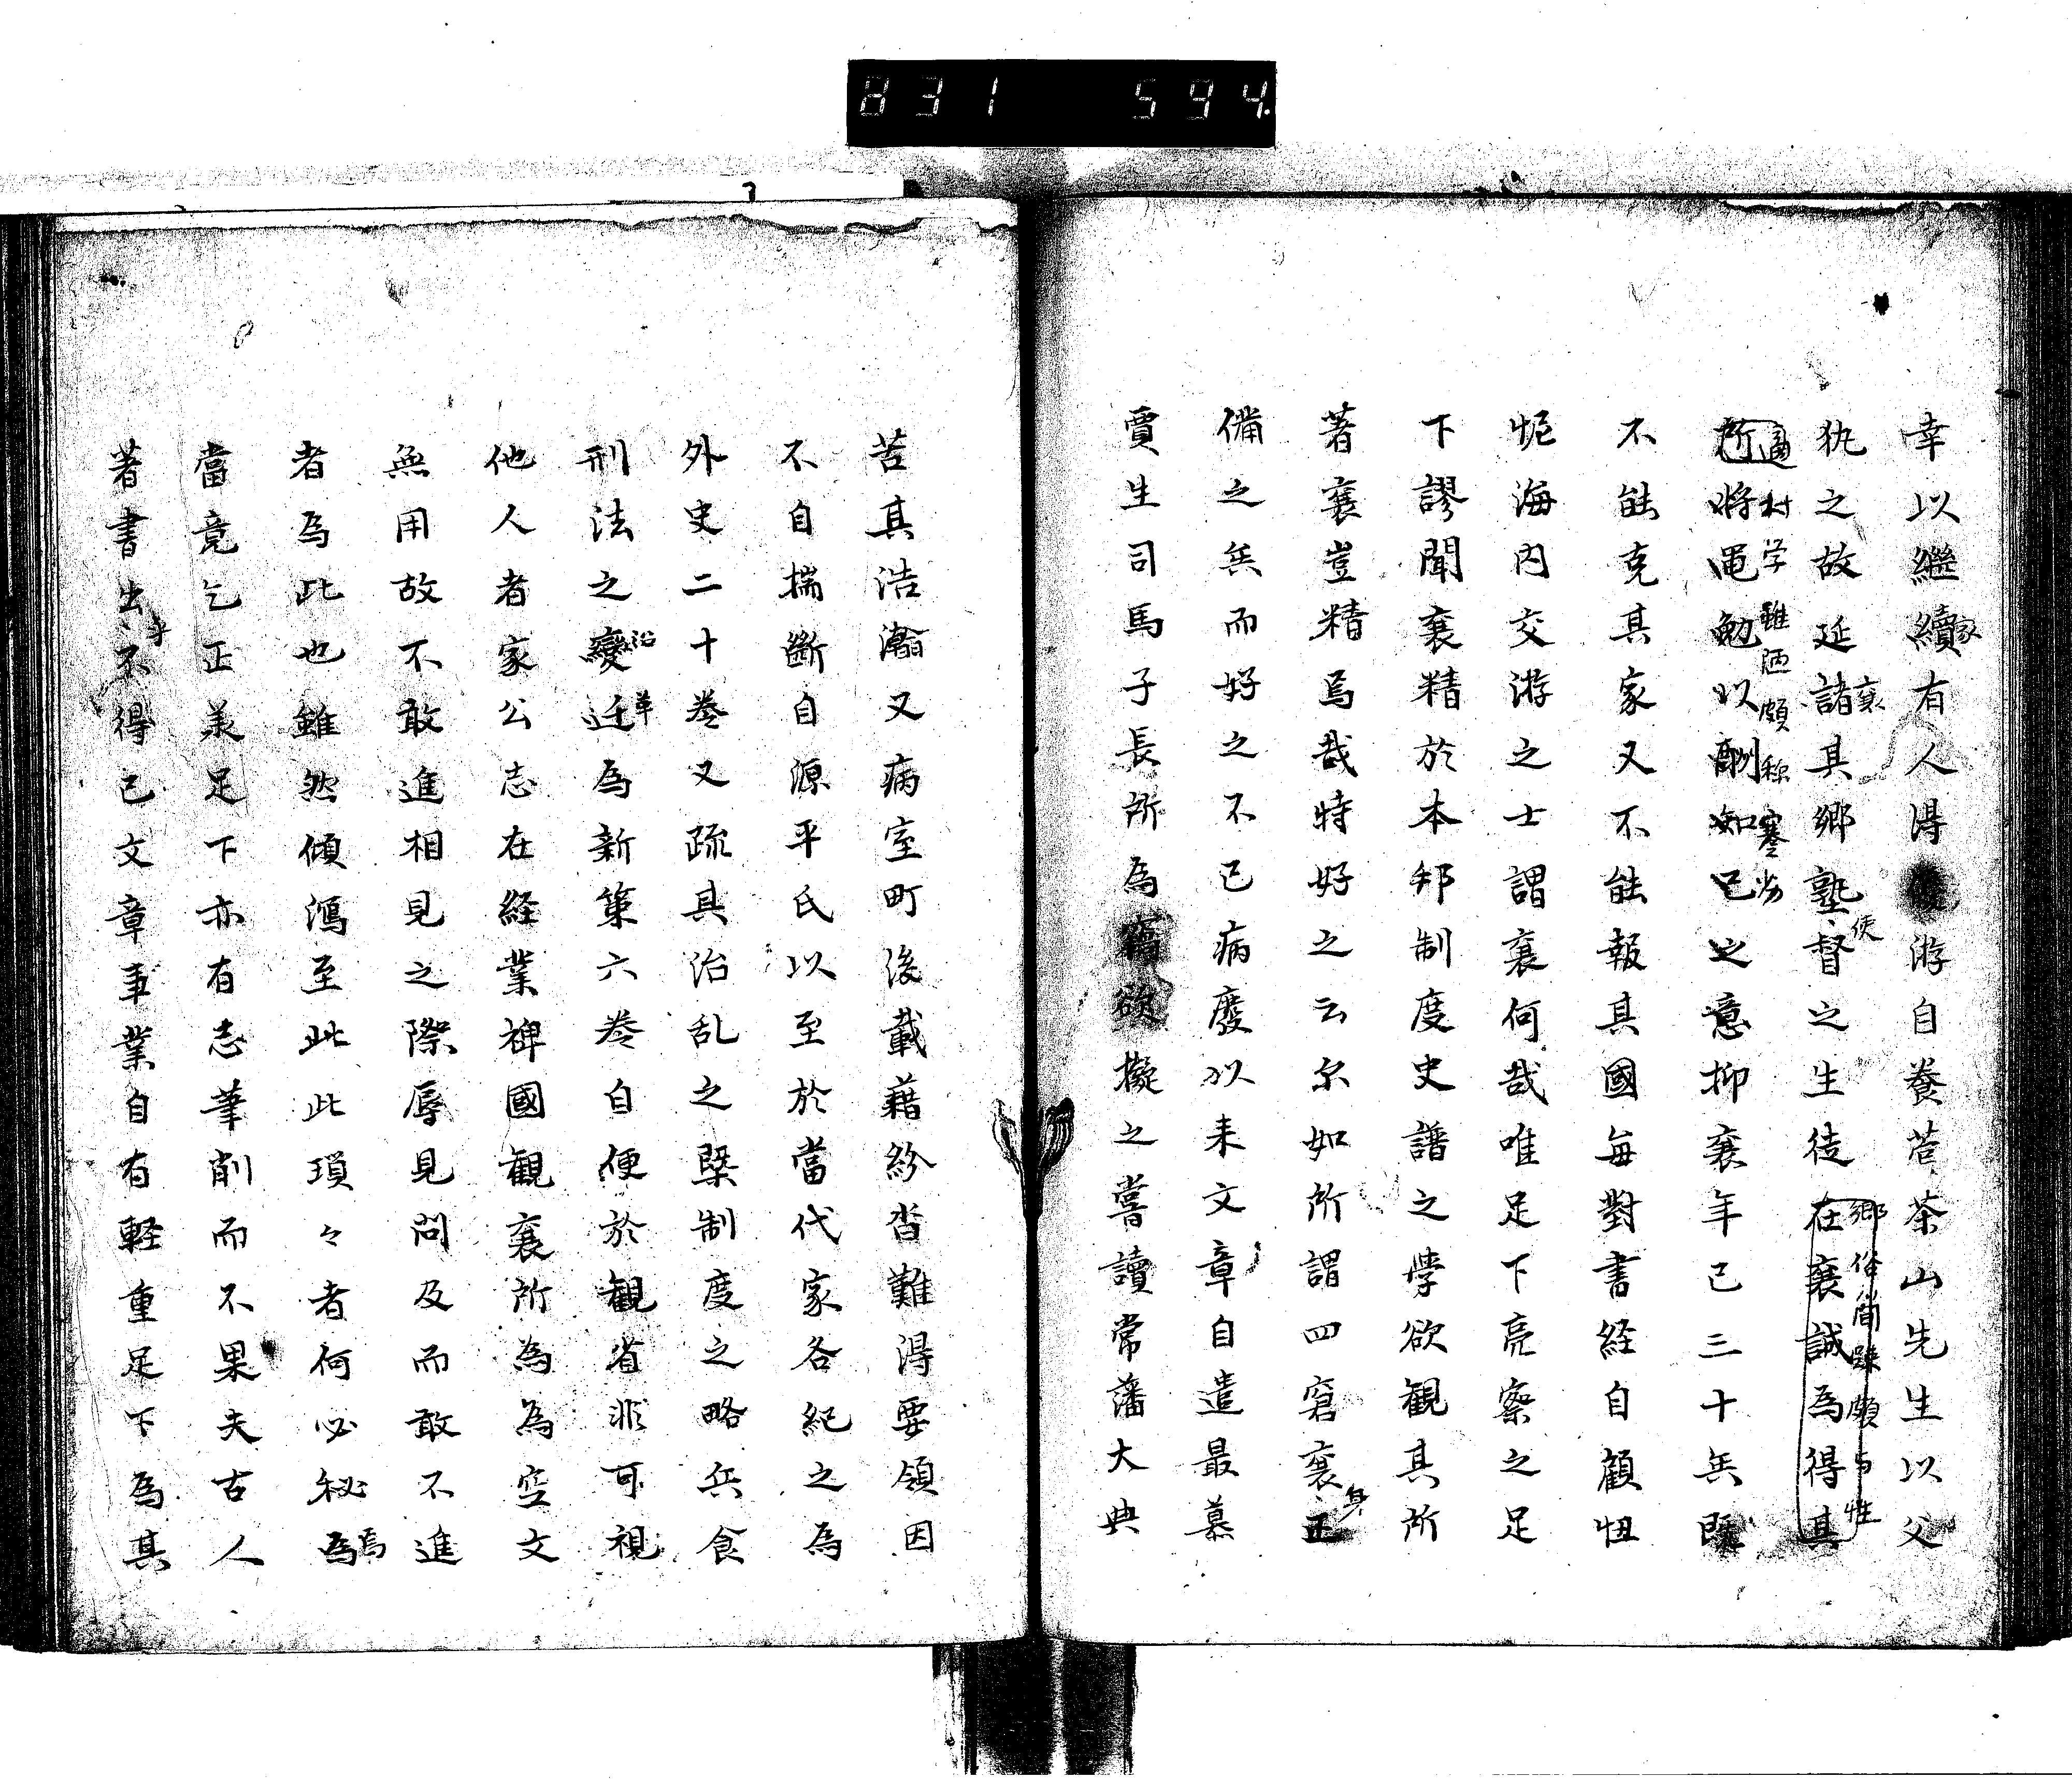 831 594
幸以繼續有人得優游自養菅茶山先生以父
家
執之故延諸其鄉塾督之生徒在襄誠為得其
襄
使
鄉俗簡疎頗与性
所將黽勉以酬知己之意抑襄年已三十矣既
適村学雖陋頗称蹇劣
不能克其家又不能報其國每對書経自顧忸
怩海內交游之士謂襄何哉唯足下亮察之足
下謬聞襄精於本邦制度史譜之學欲観其所
著襄豈精焉哉特好之云尓如所謂四窮襄正
身
備之矣而好之不已病廢以来文章自遣最慕
賈生司馬子長所為竊欲擬之嘗讀常藩大典
苦其浩瀚又病室町後載藉紛沓難得要領因
不自揣斷自源平氏以至於當代家各紀之為
外史二十巻又疏其治乱之槩制度之略兵食
刑法之變迁為新策六巻自便於観省非可視
沿
革
他人者家公志在経業裨國観襄所為為空文
無用故不敢進相見之際辱見問及而敢不進
者為此也雖然傾瀉至此此瑣々者何必秘為
焉
當竟乞正美足下亦有志筆削而不果夫古人
著書出不得已文章事業自有軽重足下為其
於